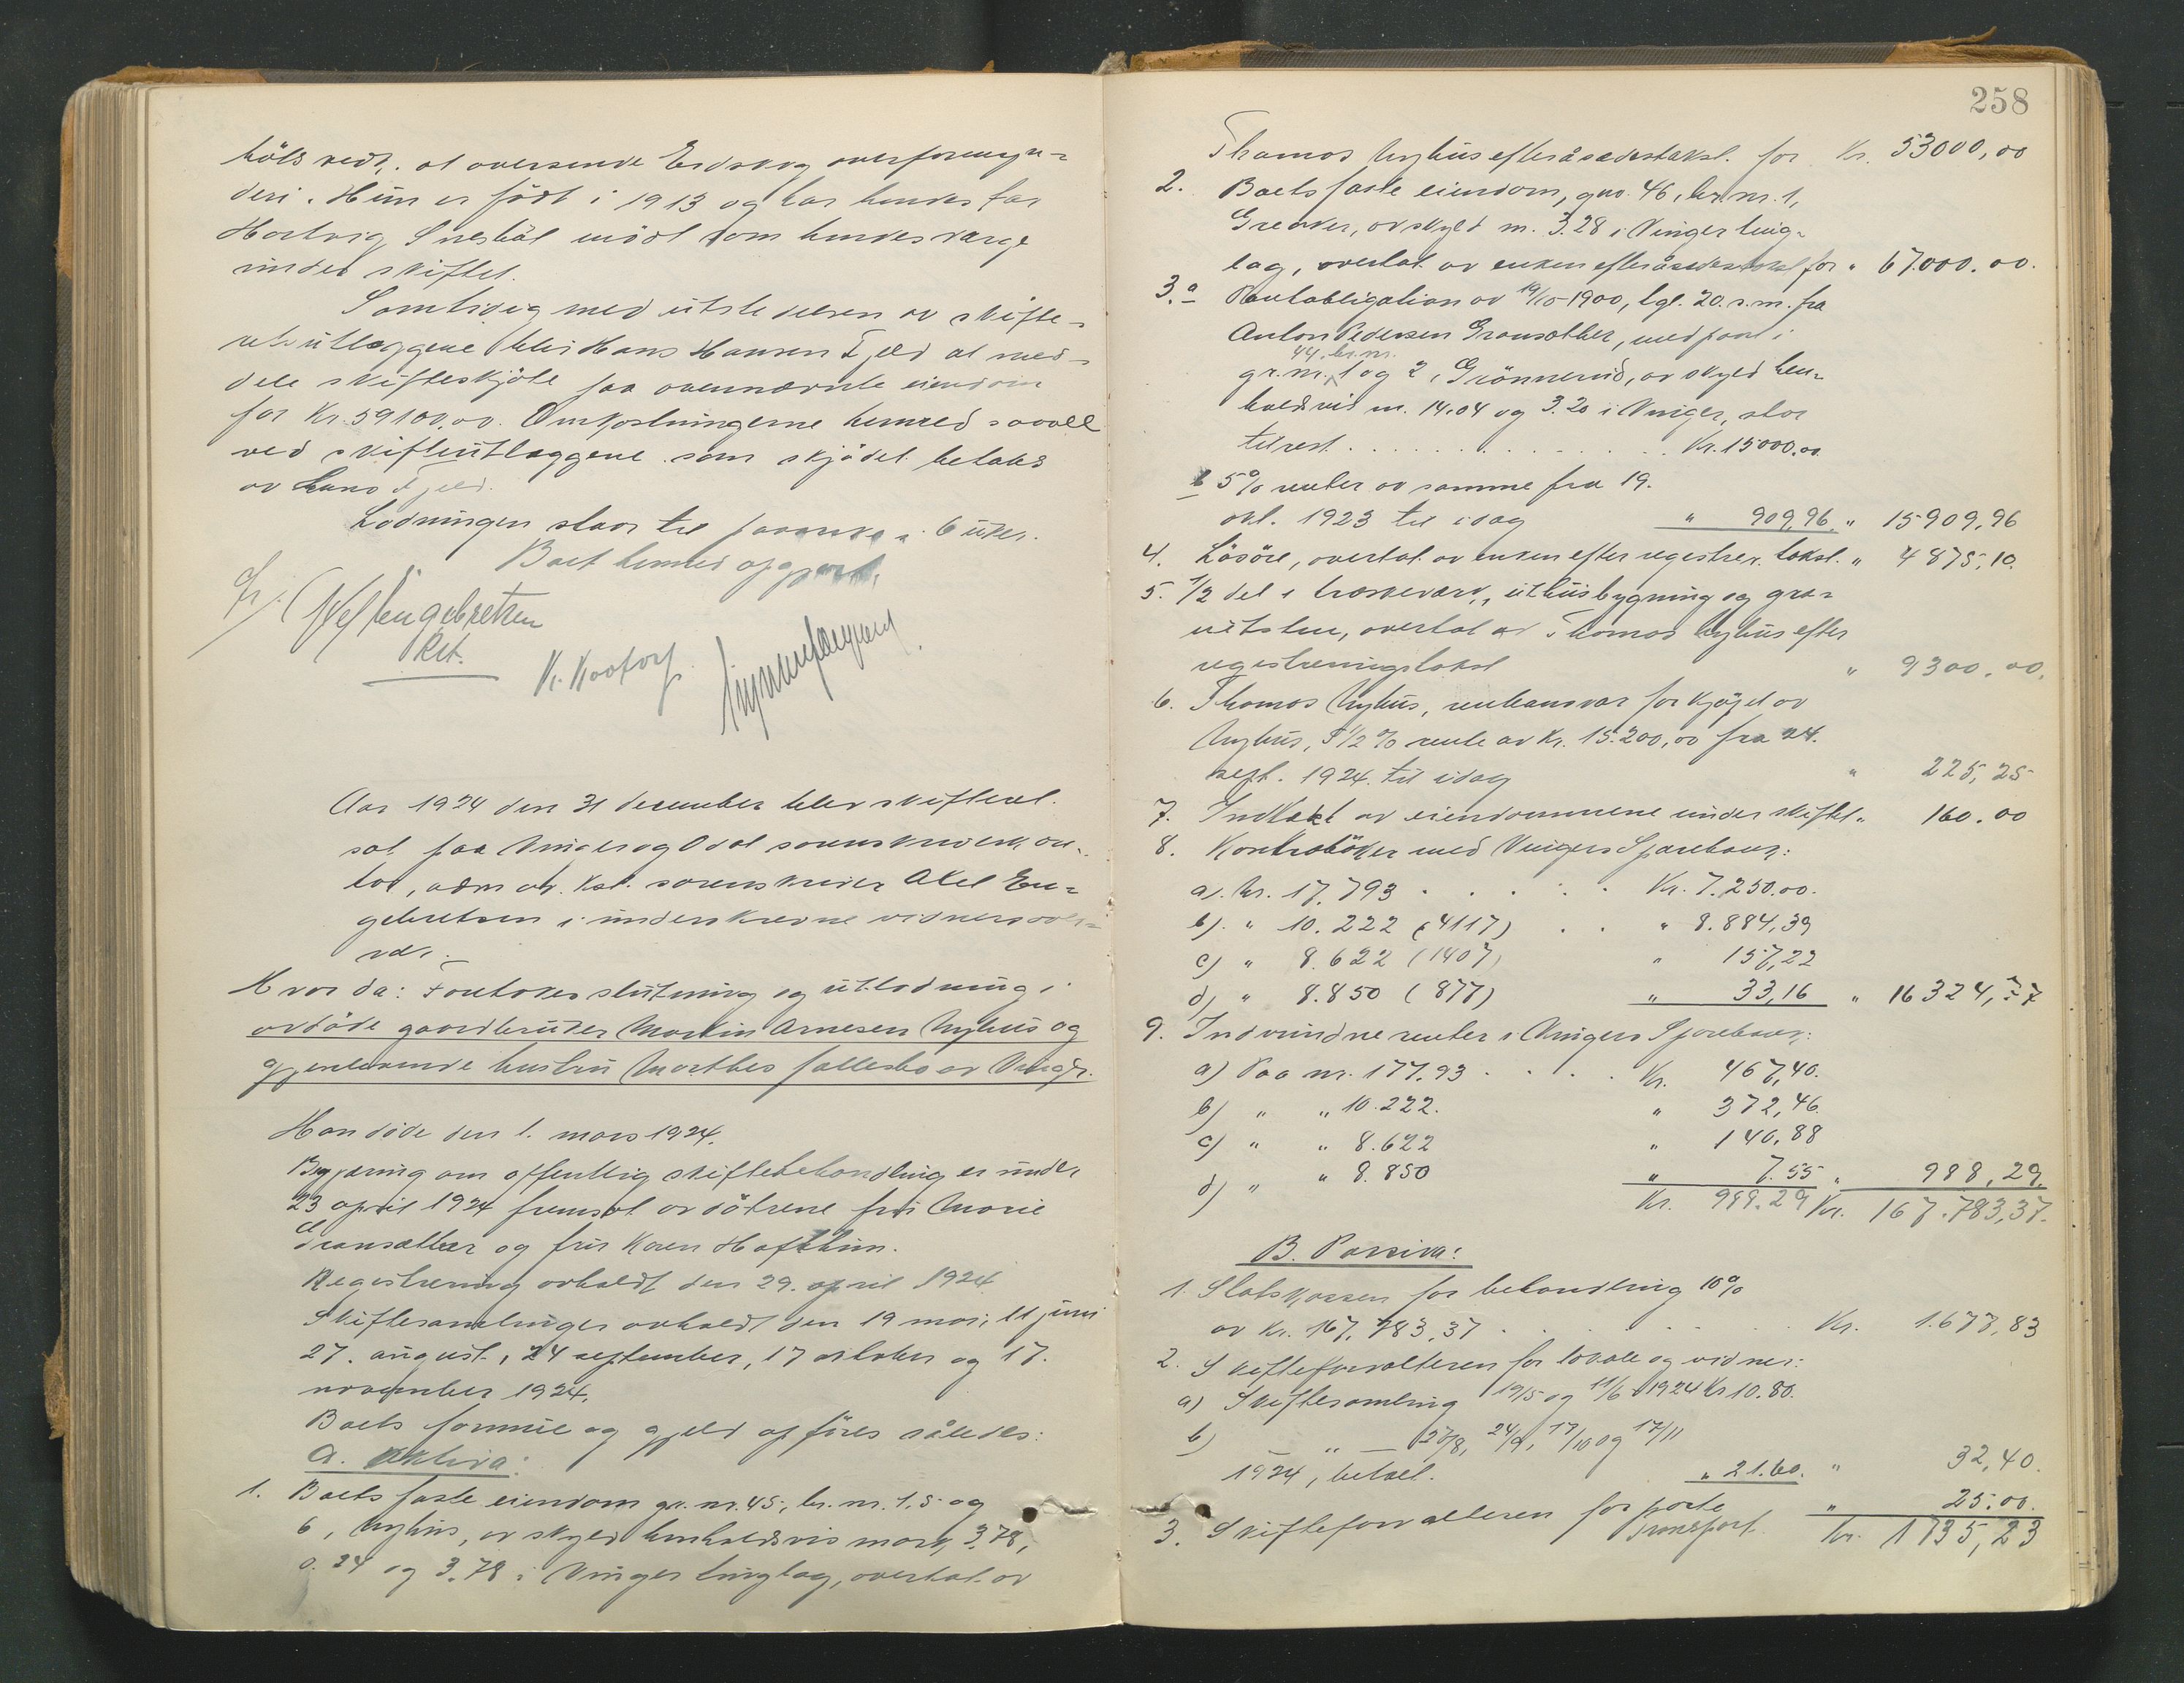 hóls vedr. at oversende Eidskog overformyn=
deri. Hun er født i 1913 og har hendes far
Hartvig Sneshål mödt som hendes verge
under skiftet.
Samtidig med utstedelsen av skifte-
utlæggene blir Hans Hansen Fjeld at med-
dele skifteskjöte paa ovennævnte eiendom
for Kr. 59100,00. Omkostningerne herved saavel
ved skifteutlæggene som skjödet betales
av Hans Fjeld.
Lodningen staar til paaanke i 6 uker.
Boet hermed opgjort.
Engebretsen
Kst.
K. Kaatorp.
Aar 1924 den 31 december blev skifteret
sat paa Vinger og Odal sorenskriverkon-
tor, adm. av kst. sorenskriver Axel En=
gebretsen i underskrevne vidners over=
vær.
Hvor da: Foretokes slutning og utlodning i
avdöde gaardbruker Martin Arnesen Nyhus og
gjenlevende hustru Marthes fællesbo av Vinger.
Han døde den 1. mars 1924.
Begjæring om offentlig skiftebehandling er under
23 april 1924 fremsat av dötrene fru Marie
Gransæther og fru Karen Hafthun.
Registrering avholdt den 29. april 1924
Skiftesamlinger avholdt den 19 mai, 11 juni
27. august, 24 september, 17 oktober og 17.
november 1924.
Boets formue og gjeld opföres således:
A. Aktiva:
1. Boets faste eiendom gr. nr. 45, br. nr. 1, 5 og
6, Nyhus, av skyld henholdsvis mark 3.78,
0.24 og 3.78 i Vinger tinglag, overtat av
258
Thomas Nyhus efter åsædestakst for Kr. 53000,00
2. Boets faste eiendom, gno. 46, br. nr. 1,
Greaker, av skyld m. 3.28 i Vinger ting=
lag, overtat av enken efter åsædestakst for " 67.000.00.
3.a Pantobligation av 19/10-1900, tgl. 20. s.m. fra
Anton Pedersen Gransæther, med pant i
44, br. nr.
gr. nr. 1 og 2, Grönnerud, av skyld hen=
holdsvis m. 14.04 og 3.20 i Vinger, stor
til rest . . . . . . . . . Kr. 15000.00
b 5% renter av samme fra 19.
okt. 1923 til idag " 909,96. " 15909,96
4. Lösöre, overtat av enken efter registrer. takst. " 4875,10.
5. 1/2 del i træskeværk, uthusbygning og gra=
nitsten, overtat av Thomas Nyhus efter
registreringstakst " 9300.00.
6. Thomas Nyhus, renteansvar for kjöpet av
Nyhus, 5 1/2 % rente av Kr. 15.200,00 fra 24.
sept. 1924. til idag " 225,25
7. Indtækt av eiendommene under skiftet " 160.00
8. Kontraböker med Vingers Sparebank:
a). Nr. 17.793 . . . . . Kr. 7.250.00.
b). " 10.222 (4117) . . " 8.884,39
c) " 8.622 (1407) " 157,22
d) " 8.850 (877) " 33,16 " 16324,77
9. Indvundne renter i Vingers Sparebank:
a) Paa nr. 177.93 . . . . Kr. 467,40.
b) " " 10.222. " 372,46.
c) " " 8.622 " 140,88
d) " " 8.850 " 7.55 " 988,29.
Kr. 988.29 Kr. 167.783,37.
B. Passiva:
1. Statskassen for behandling 10%
av Kr. 167.783,37 . . . . . . Kr. 1.677,83
2. Skifteforvalteren for lokale og vidner:
a) Skiftesamling 19/5 og 11/6 1924 Kr. 10.80.
b) — " — 27/8, 24/9, 17/10 og 17/11
1924, betalt. " 21.60. " 32,40.
3. Skifteforvalteren for porto " 25.00.
Transport Kr. 1735,23